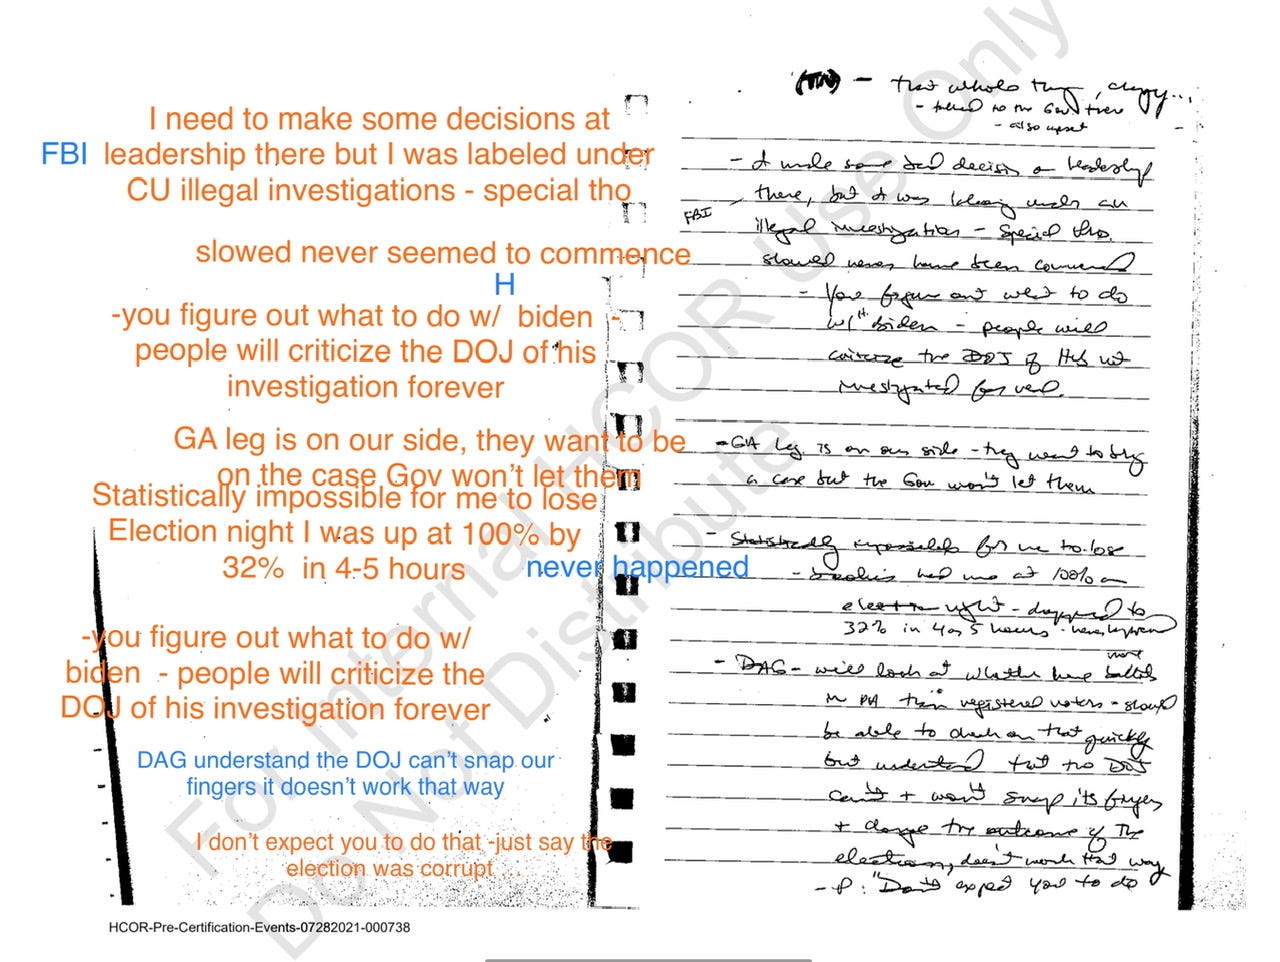 I need to make some decisions at
FBI leadership there but I was labeled under
CU illegal investigations - special tho
slowed never seemed to commence
H
-you figure out what to do w/ biden -
people will criticize the DOJ of his
investigation forever
GA leg is on our side, they want to be
on the case Gov won't let them
Statistically impossible for me to lose
Election night I was up at 100% by
32% in 4-5 hours never happened
-you figure out what to do w/
biden - people will criticize the
DOJ of his investigation forever
DAG understand the DOJ can't snap our
fingers it doesn't work that way
I don't expect you to do that -just say the
election was corrupt ...
HCOR-Pre-Certification-Events-07282021-000738
For Internal HCOR Use Only
Do Not Distribute
- that whole thing,
- talked to the Gov there
- also upset
- I made some bad decision on leadership
there, but I was under an
FBI
illegal investigation - special
never have been commenced
- You figure out what to do
w/ H. Biden - people will
criticize the DOJ if he's not
investigated for real.
- GA leg. is on our side - they want to bring
a case but the Gov won't let them
- Statistically impossible for me to lose
- had me at 100% on
election night - dropped to
32% in 4 or 5 hours - never happened
- DAG - will look at whether have more ballots
in PA than registered voters - should
be able to check on that quickly
but understand that the DOJ
can't + won't snap its fingers
+ change the outcome of the
election, doesn't work that way
- P: "Don't expect you to do